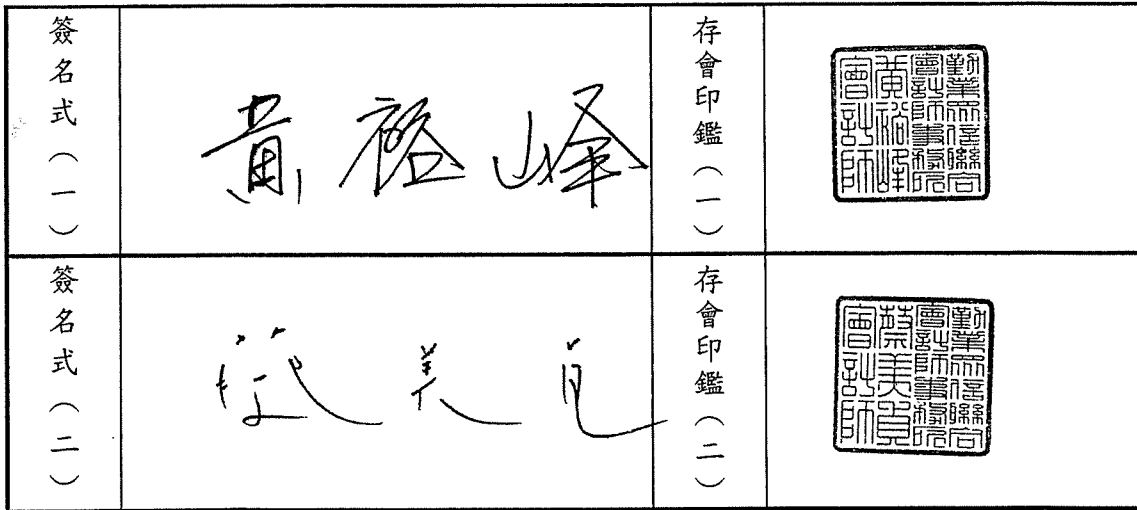 簽名式（一）
黃裕峰
存會印鑑（一）
勤業眾信聯合
會計師事務所
黃裕峰
會計師
簽名式（二）
蔡美貞
存會印鑑（二）
勤業眾信聯合
會計師事務所
蔡美貞
會計師